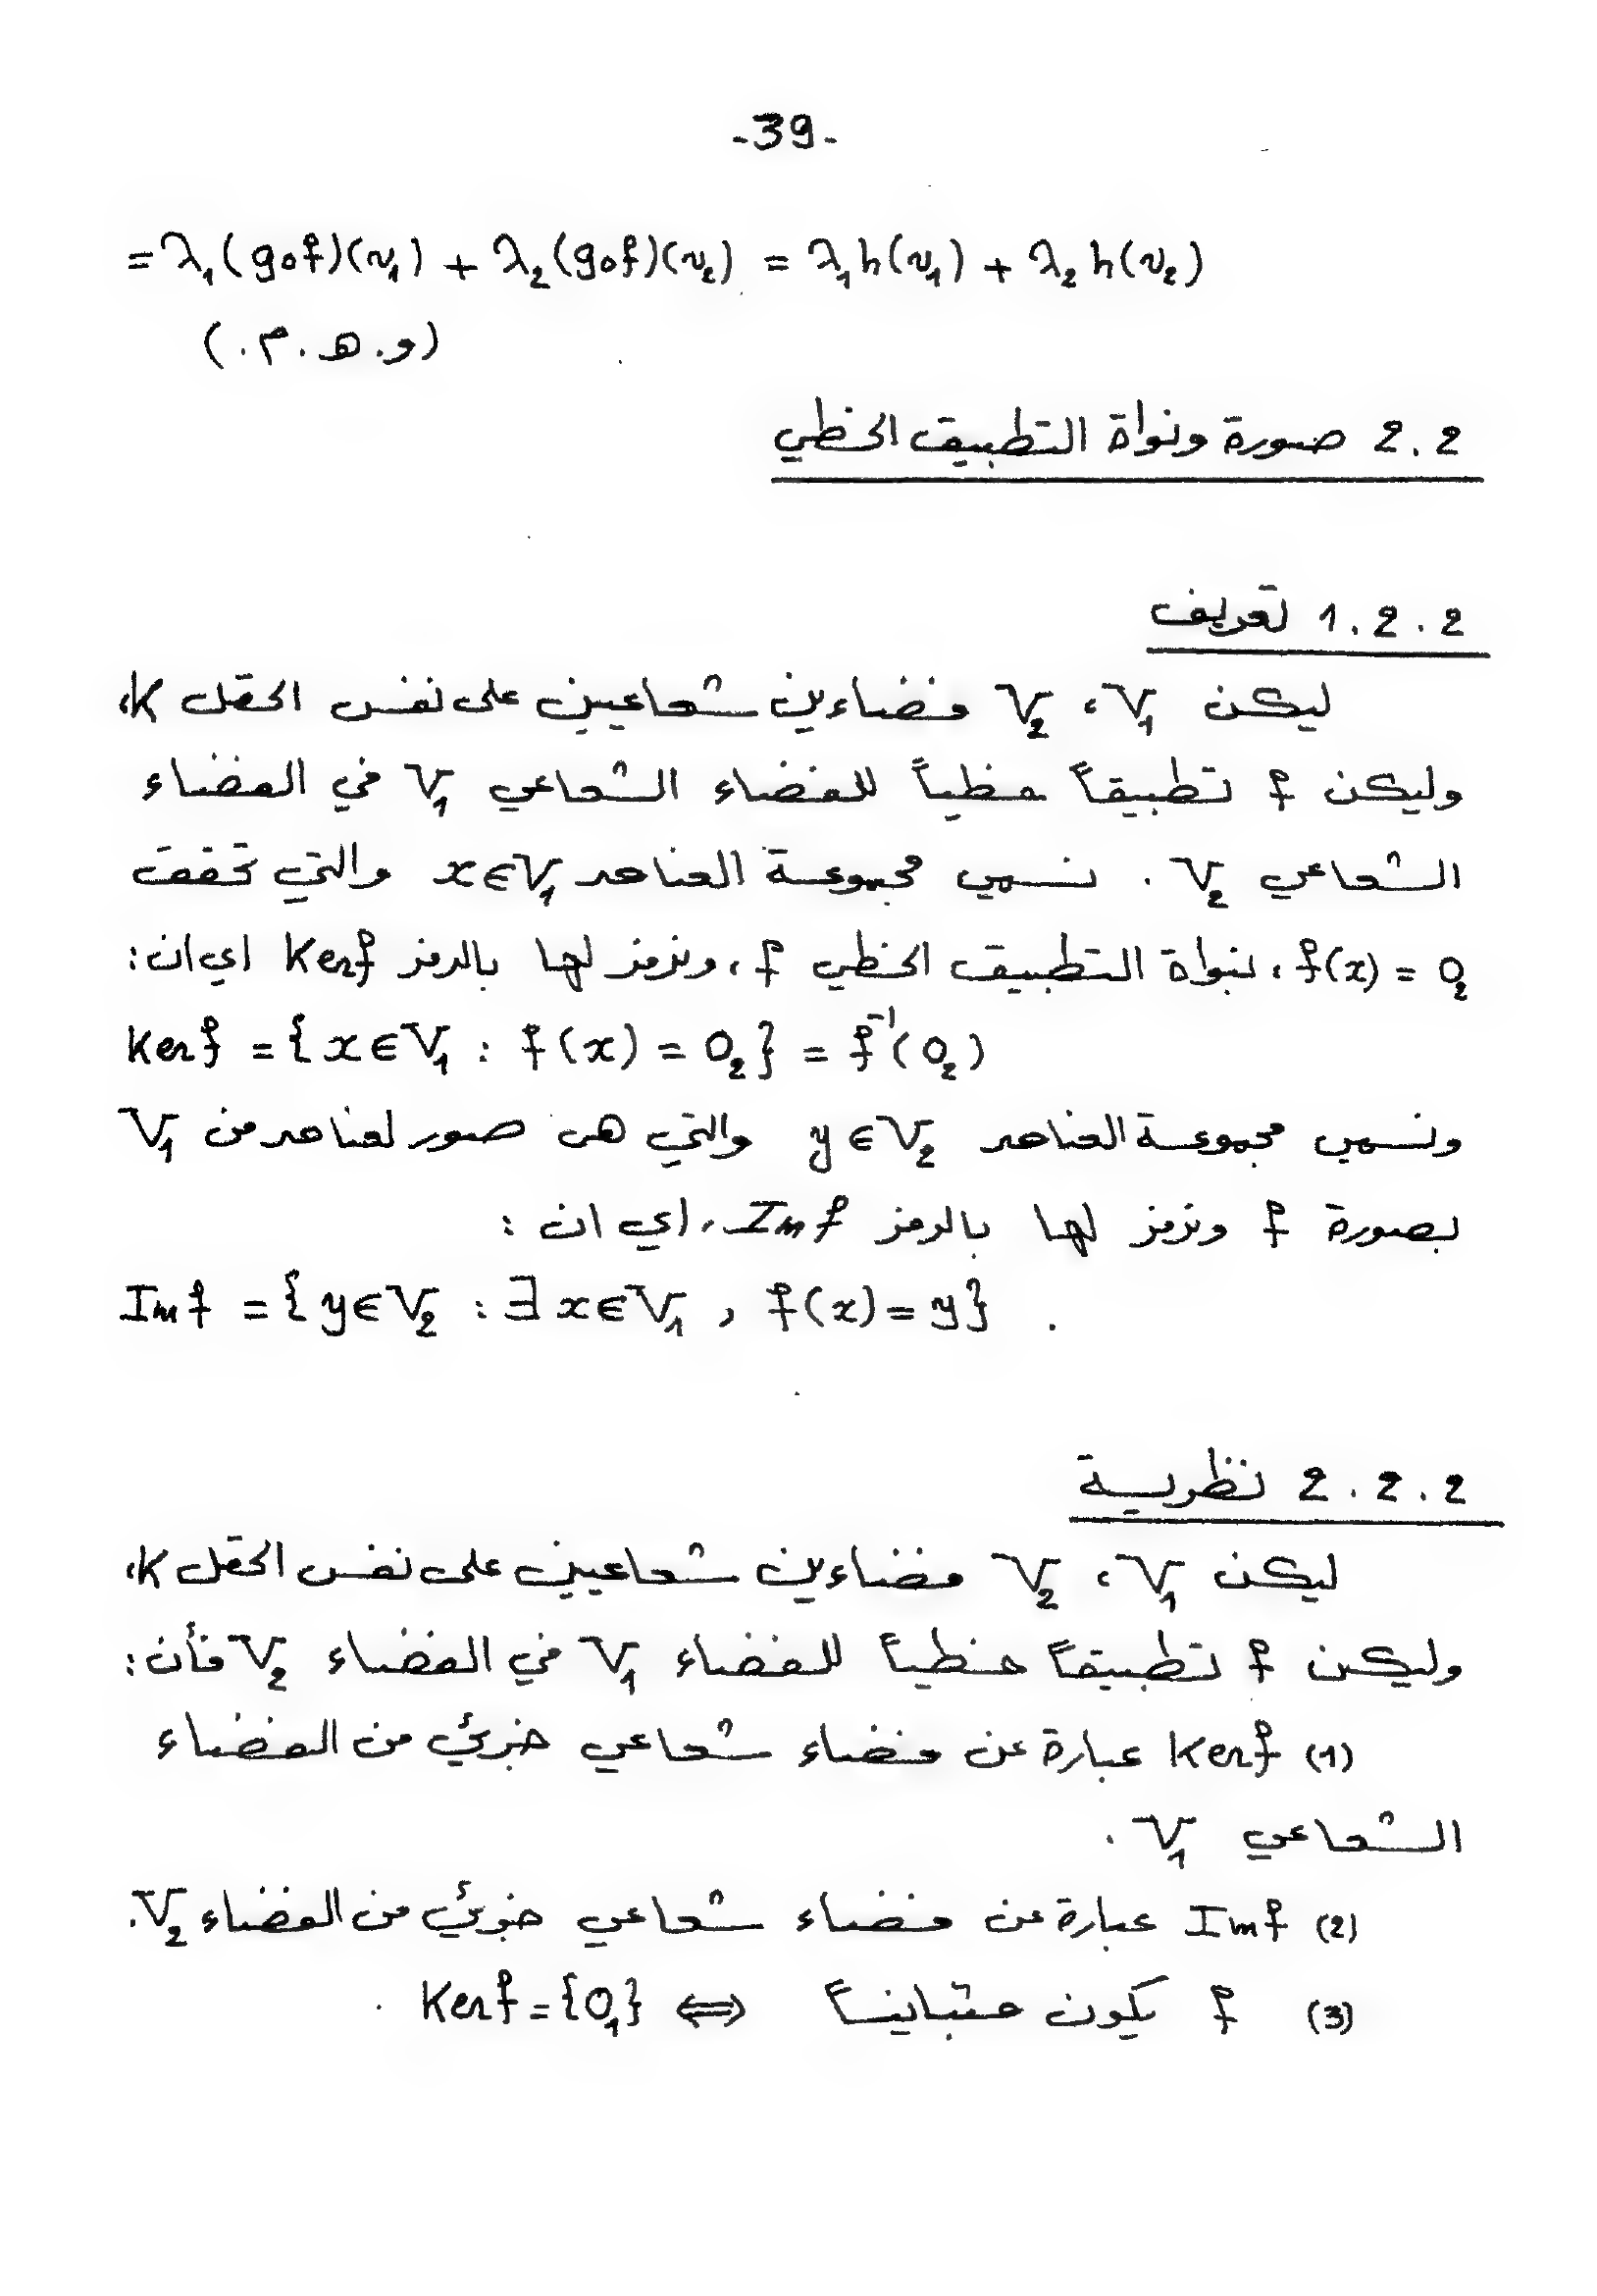 -39-
= λ₁(gof)(v₁) + λ₂(gof)(v₂) = λ₁h(v₁) + λ₂h(v₂)
(و. ه. م.)
2.2 صورة ونواة التطبيق الخطي
1.2.2 تعريف
ليكن V₁ ، V₂ فضاءين شعاعيين على نفس الحقل K،
وليكن f تطبيقاً خطياً للفضاء الشعاعي V₁ في الفضاء
الشعاعي V₂ . نسمي مجموعة العناصر x∈V₁ والتي تحقق
f(x) = 0₂ ، بنواة التطبيق الخطي f ، ونرمز لها بالرمز Kerf اي ان:
Kerf = {x∈V₁ : f(x) = 0₂} = f⁻¹(0₂)
ونسمي مجموعة العناصر y∈V₂ والتي هي صور لعناصر من V₁
بصورة f ونرمز لها بالرمز Imf ، اي ان :
Imf = {y∈V₂ : ∃ x∈V₁ , f(x) = y} .
2.2.2 نظريـة
ليكن V₁ ، V₂ فضاءين شعاعيين على نفس الحقل K،
وليكن f تطبيقاً خطياً للفضاء V₁ في الفضاء V₂ فأن:
(1) Kerf عبارة عن فضاء شعاعي جزئي من الفضاء
الشعاعي V₁ .
(2) Imf عبارة عن فضاء شعاعي جزئي من الفضاء V₂.
(3) f يكون متبايناً ⇔ Kerf = {0₁} .